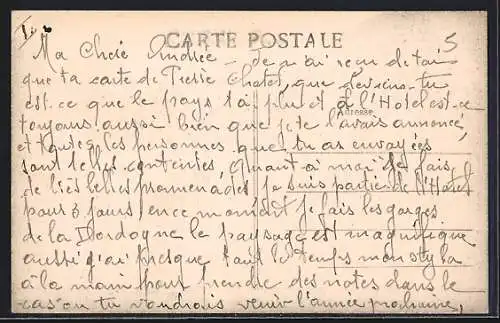 CARTE POSTALE
5
Ma Chère Andrée — Je n'ai reçu de toi
que ta carte de Pierre Chatel, que deviens-tu
est-ce que le pays t'a plu et à l'Hotel est-ce
toujours aussi bien que je te l'avais annoncé,
et toutes les personnes que tu as envoyées
sont elles contentes, Quant à moi je fais
de très belles promenades je suis partie de l'Hotel
pour 3 jours, en ce moment je fais les gorges
de la Dordogne le paysage est magnifique
aussi j'ai presque tout le temps mon stylo
à la main pour prendre des notes dans le
cas où tu voudrais venir l'année prochaine,